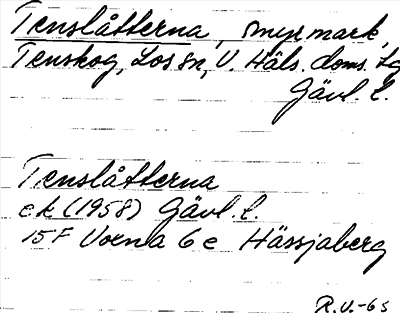 Tenslåtterna, myrmark,
Tenskog, Los sn, V. Häls. doms. lg
Gävl. l.
Tenslåtterna
ek (1958) Gävl. l.
15F Voxna 6e Hässjaberg
R.V.-65